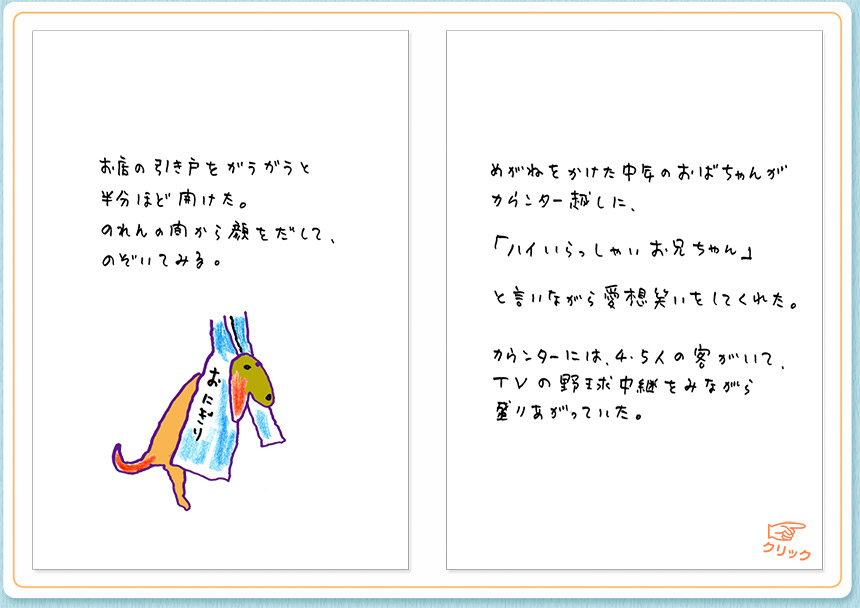 お店の引き戸をがらがらと
半分ほど開けた。
のれんの間から顔をだして、
のぞいてみる。
おにぎり
めがねをかけた中年のおばちゃんが
カウンター越しに、
「ハイいらっしゃい お兄ちゃん」
と言いながら愛想笑いをしてくれた。
カウンターには、4・5人の客がいて、
TVの野球中継をみながら
盛りあがっていた。
クリック